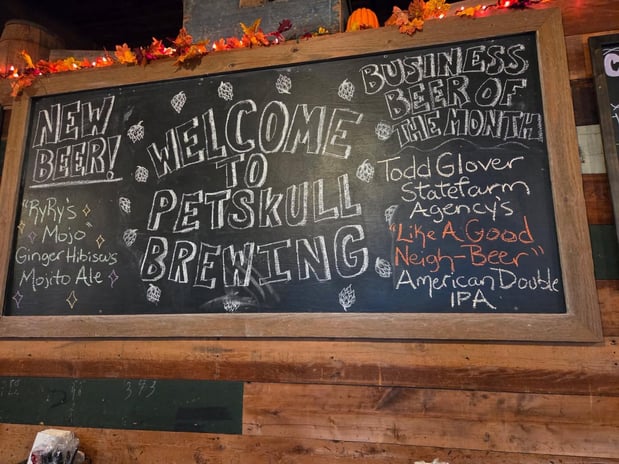 NEW
BEER!
"RyRy's
Mojo"
Ginger Hibiscus
Mojito Ale
WELCOME
TO
PETSKULL
BREWING
BUSINESS
BEER OF
THE MONTH
Todd Glover
StateFarm
Agency's
"Like A Good
Neigh-Beer"
American Double
IPA
343